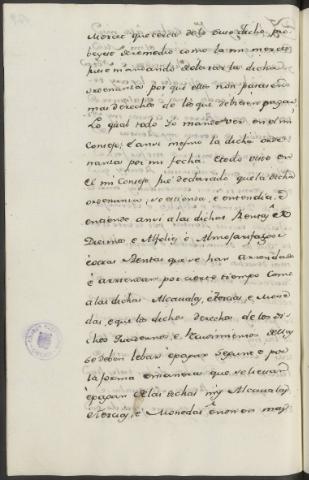 Merced que cerca de lo suso dicho pro
beyese de remedio como la mi merced
fuese mandando declarar las dichas
ordenanzas por que ellos non pasasen
mas derechos de los que debiesen pagar
Lo qual todo Yo mandé ver en el mi
Consejo, é ansi mismo la dicha orde
nanza por mi fecha. E todo visto en
el mi Consejo fue declarado que la dicha
ordenanza, se estienda, é entendia, é
entiende ansi á las dichas Rentas de
Diezmos é Alfolies é Almojarifazgos
é otras Rentas que se han arrendado
é arrendaren por cierto tiempo Como
á las dichas Alcavalas, é Tercias, é Mone
das, e que los dichos derechos de los di
chos é Recudimientos dellas
se deben lebar é pagar segunt e por
la forma é manera que se llevan
é pagan de las dichas mis Alcavalas
é Tercias, é Monedas é non en mas